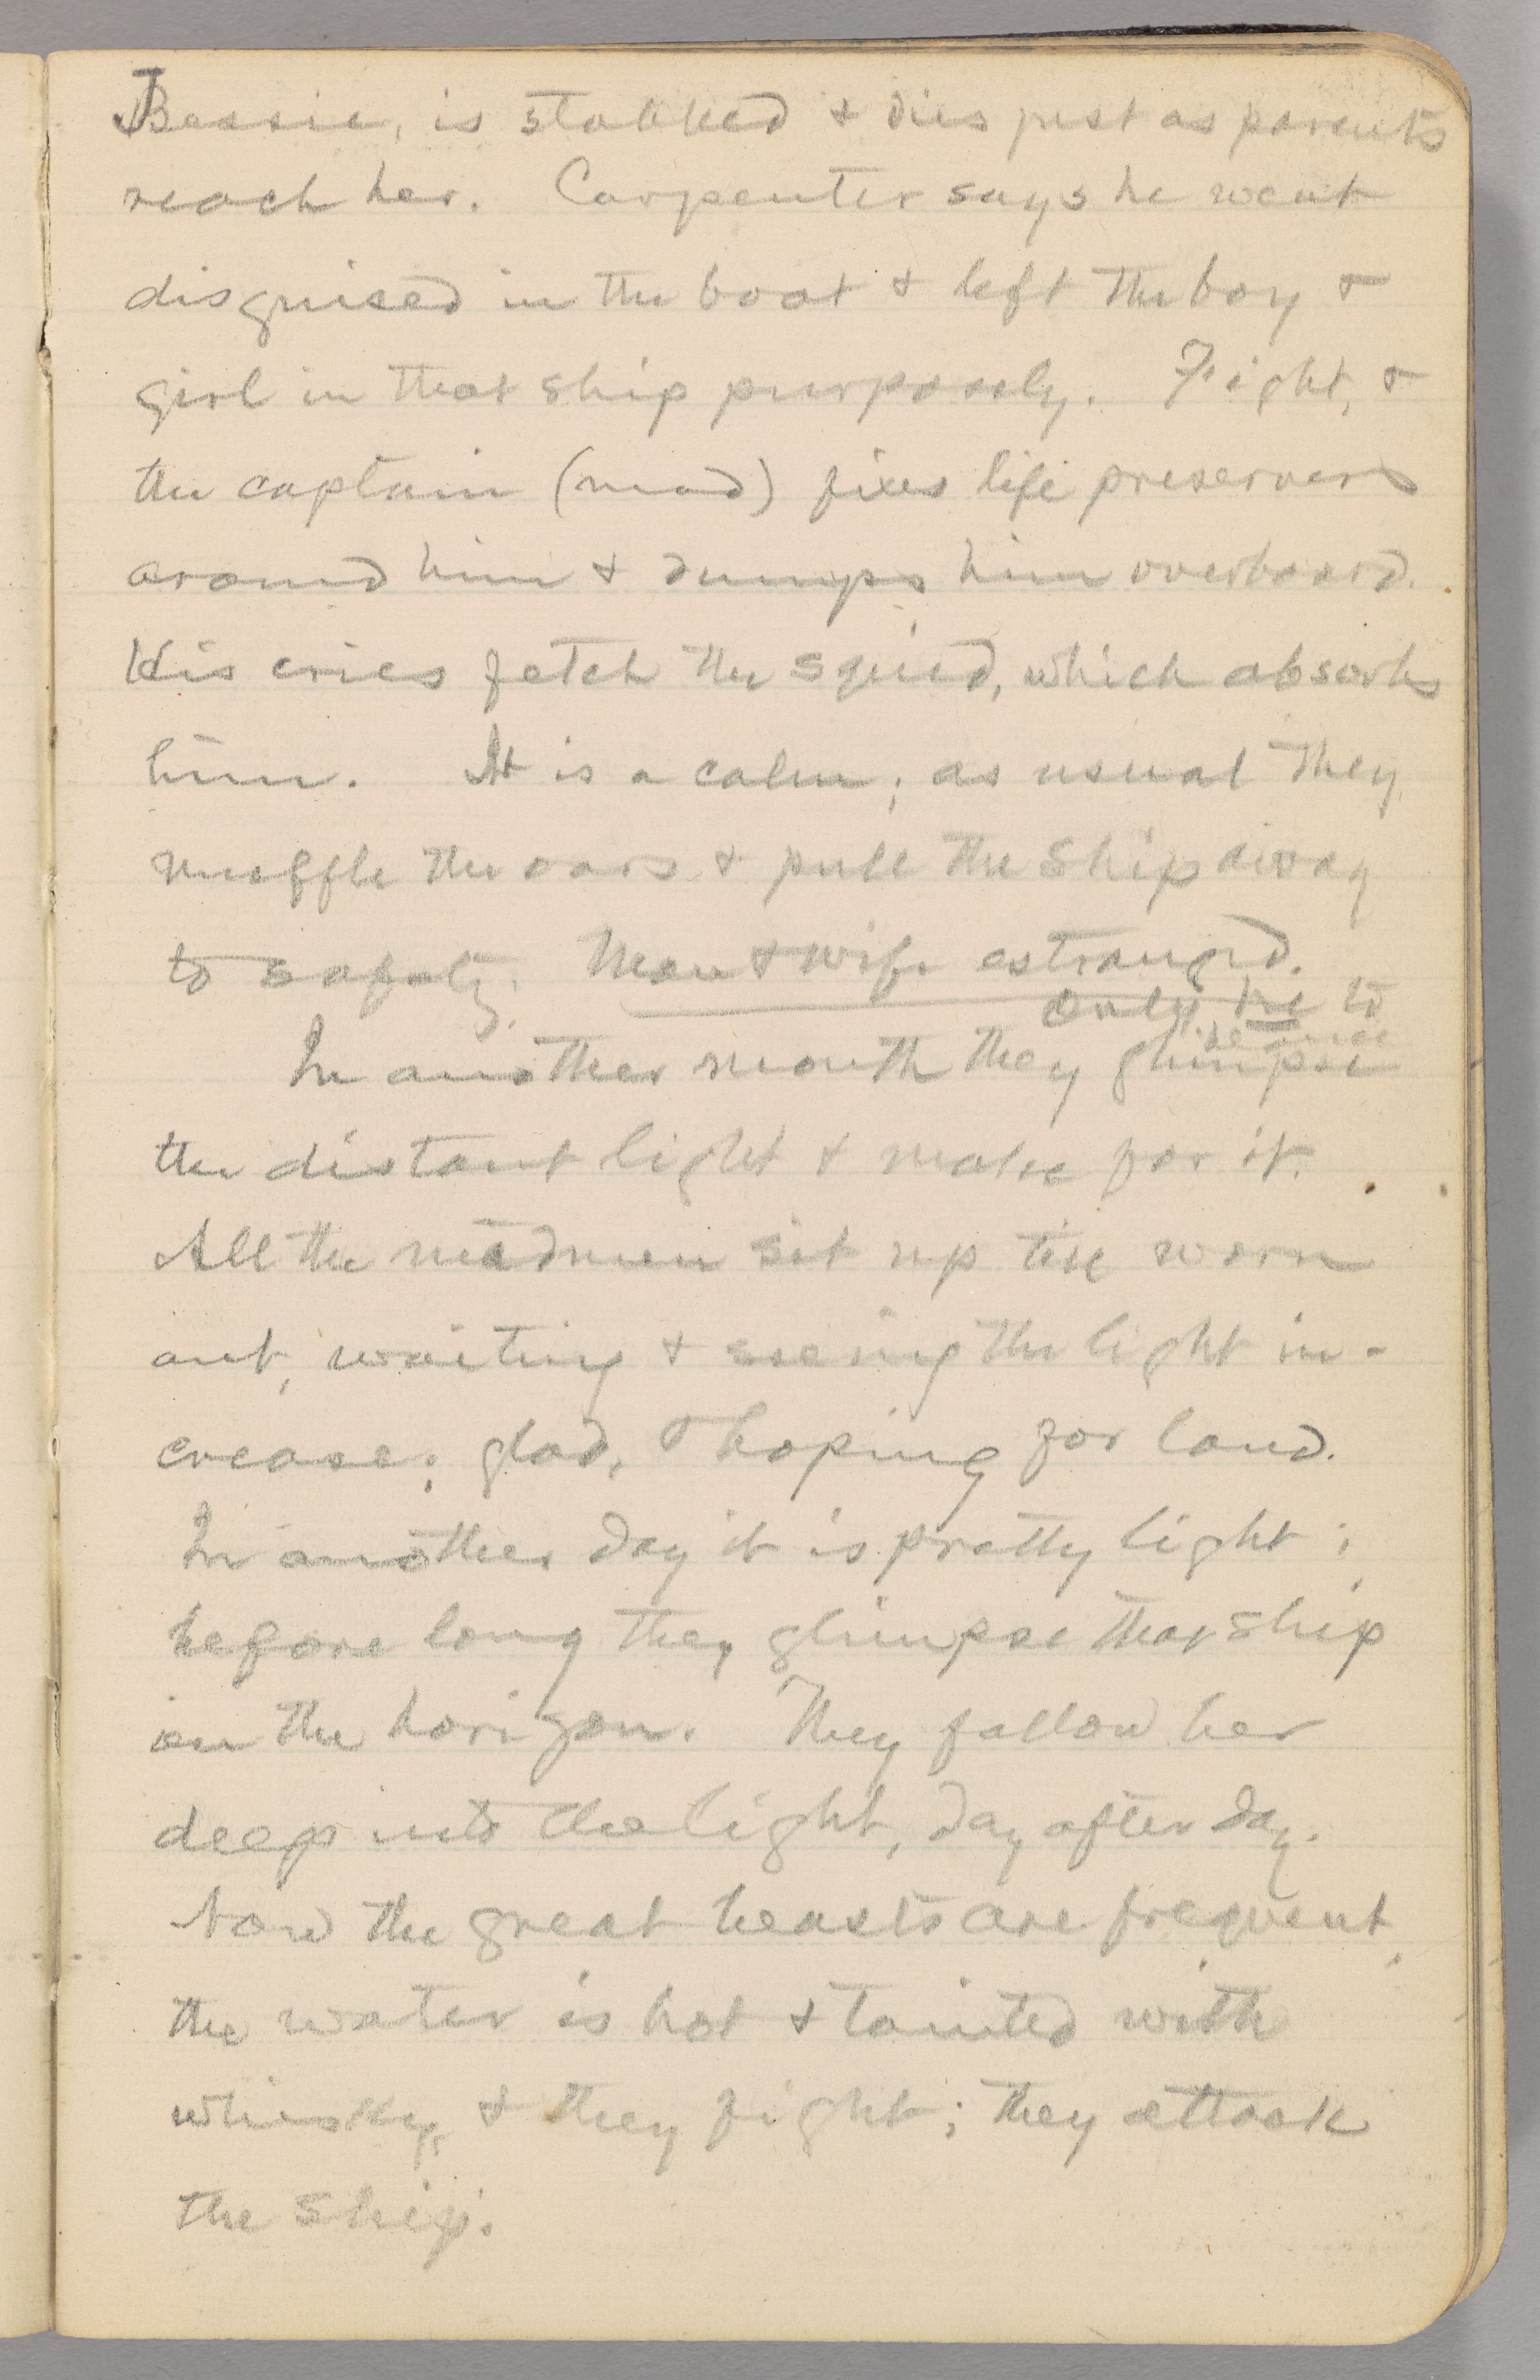 Bessie, is stabbed & dies just as parents
reach her. Carpenter says he went
disguised in the boat & left the boy &
girl in that ship purposely. Fight, &
the captain (mad) fixes life preservers
around him & dumps him overboard.
His cries fetch the squid, which absorbs
him. It is a calm; as usual they
muffle the oars & pull the ship away
to safety. Man & wife estranged.
Only he to
In another month they glimpse
the distant light & make for it.
All the madmen sit up till worn
out, waiting & seeing the light in-
crease; glad, & hoping for land.
In another day it is pretty light;
before long they glimpse that ship
on the horizon. They follow her
deep into the light, day after day.
Now the great beasts are frequent,
the water is hot & tainted with
whisky, & they fight; they attack
the ship.